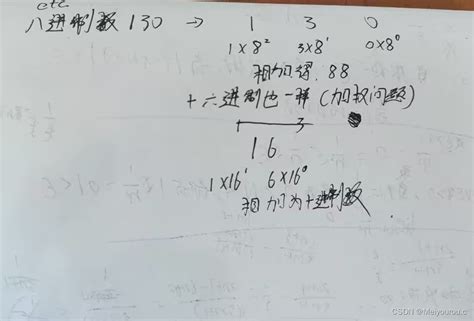 etc
八进制数 130 → 1 3 0
1×8² 3×8¹ 0×8⁰
相加得:88
十六进制也一样(加权问题)
16
1×16¹ 6×16⁰
相加为十进制数
CSDN @Meiyouroucc